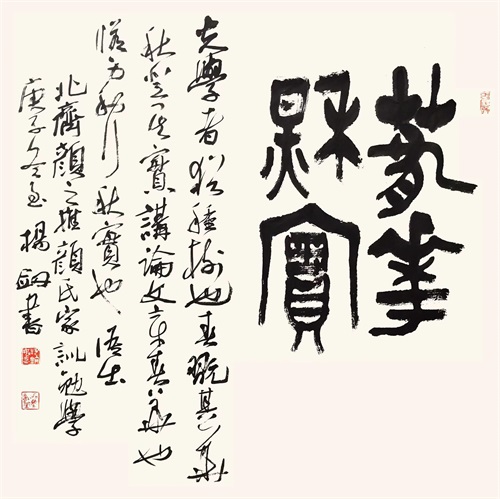 春華
秋實
夫學者猶種樹也春玩其華
秋登其實講論文章春華也
脩身利行秋實也 語出
北齊顏之推顏氏家訓勉學
庚子冬至 楊劍書